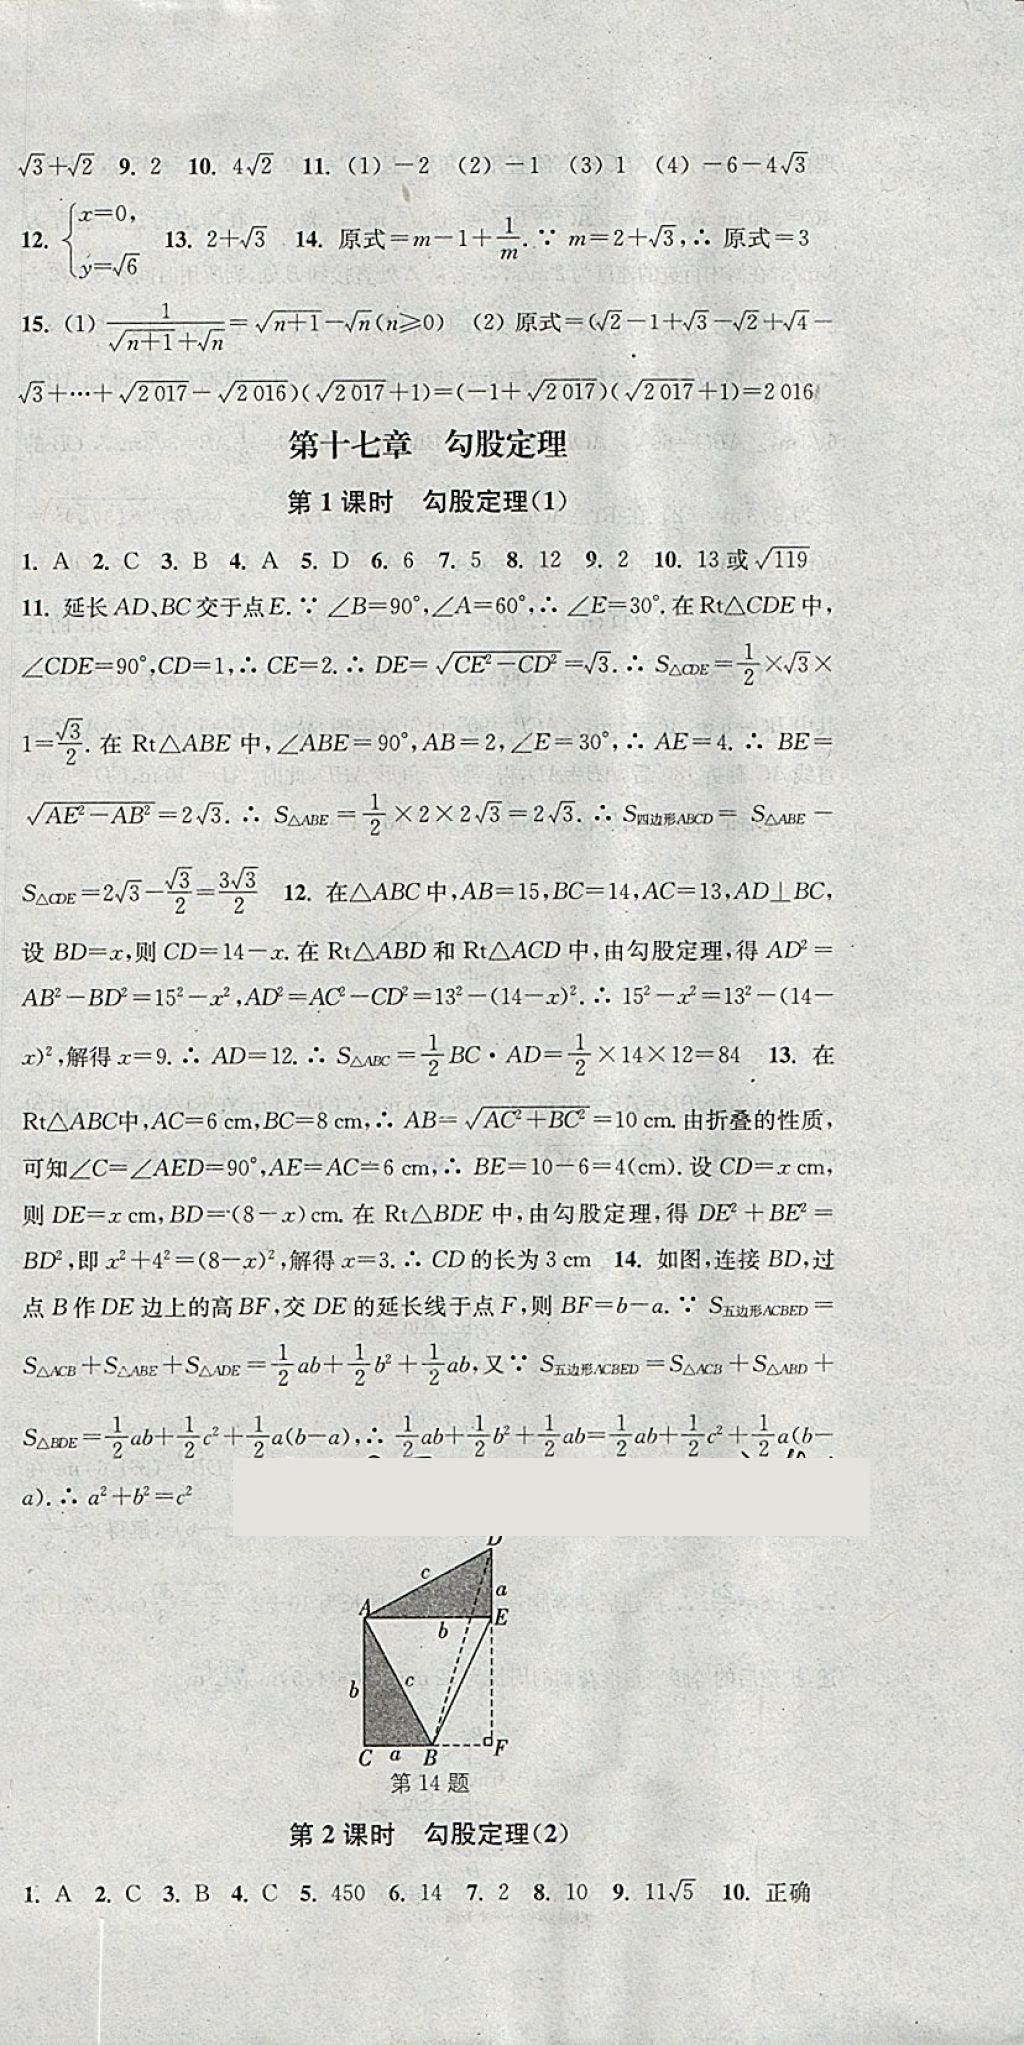 √3+√2 9. 2 10. 4√2 11. (1)-2 (2)-1 (3)1 (4)-6-4√3
12. {x=0, y=√6 13. 2+√3 14. 原式=m-1+1/m.∵ m=2+√3,∴ 原式=3
15. (1) 1/(√(n+1)+√n)=√(n+1)-√n(n≥0) (2) 原式=(√2-1+√3-√2+√4-
√3+…+√2 017-√2 016)(√2 017+1)=(-1+√2 017)(√2 017+1)=2 016
第十七章 勾股定理
第1课时 勾股定理(1)
1. A 2. C 3. B 4. A 5. D 6. 6 7. 5 8. 12 9. 2 10. 13或√119
11. 延长AD、BC交于点E.∵ ∠B=90°,∠A=60°,∴ ∠E=30°.在Rt△CDE中,
∠CDE=90°,CD=1,∴ CE=2.∴ DE=√(CE²-CD²)=√3.∴ S△CDE=1/2×√3×
1=√3/2.在Rt△ABE中,∠ABE=90°,AB=2,∠E=30°,∴ AE=4.∴ BE=
√(AE²-AB²)=2√3.∴ S△ABE=1/2×2×2√3=2√3.∴ S四边形ABCD=S△ABE-
S△CDE=2√3-√3/2=3√3/2 12. 在△ABC中,AB=15,BC=14,AC=13,AD⊥BC,
设BD=x,则CD=14-x.在Rt△ABD和Rt△ACD中,由勾股定理,得AD²=
AB²-BD²=15²-x²,AD²=AC²-CD²=13²-(14-x)².∴ 15²-x²=13²-(14-
x)²,解得x=9.∴ AD=12.∴ S△ABC=1/2BC·AD=1/2×14×12=84 13. 在
Rt△ABC中,AC=6 cm,BC=8 cm,∴ AB=√(AC²+BC²)=10 cm.由折叠的性质,
可知∠C=∠AED=90°,AE=AC=6 cm,∴ BE=10-6=4(cm).设CD=x cm,
则DE=x cm,BD=(8-x)cm.在Rt△BDE中,由勾股定理,得DE²+BE²=
BD²,即x²+4²=(8-x)²,解得x=3.∴ CD的长为3 cm 14. 如图,连接BD,过
点B作DE边上的高BF,交DE的延长线于点F,则BF=b-a.∵ S五边形ACBED=
S△ACB+S△ABE+S△ADE=1/2ab+1/2b²+1/2ab,又∵ S五边形ACBED=S△ACB+S△ABD+
S△BDE=1/2ab+1/2c²+1/2a(b-a),∴ 1/2ab+1/2b²+1/2ab=1/2ab+1/2c²+1/2a(b-
a).∴ a²+b²=c²
D
c
a
A
E
b
b
c
C a B F
第14题
第2课时 勾股定理(2)
1. A 2. C 3. B 4. C 5. 450 6. 14 7. 2 8. 10 9. 11√5 10. 正确